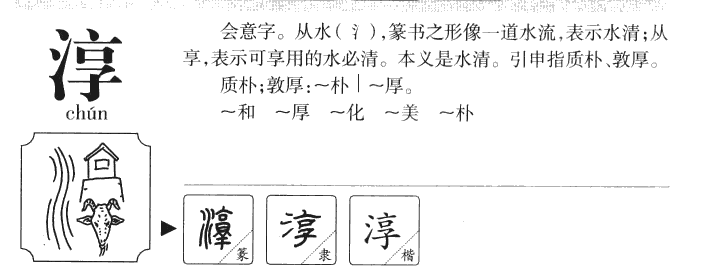 淳
chún
会意字。从水(氵),篆书之形像一道水流,表示水清;从
享,表示可享用的水必清。本义是水清。引申指质朴、敦厚。
质朴;敦厚:～朴│～厚。
～和 ～厚 ～化 ～美 ～朴
淳 篆 淳 隶 淳 楷